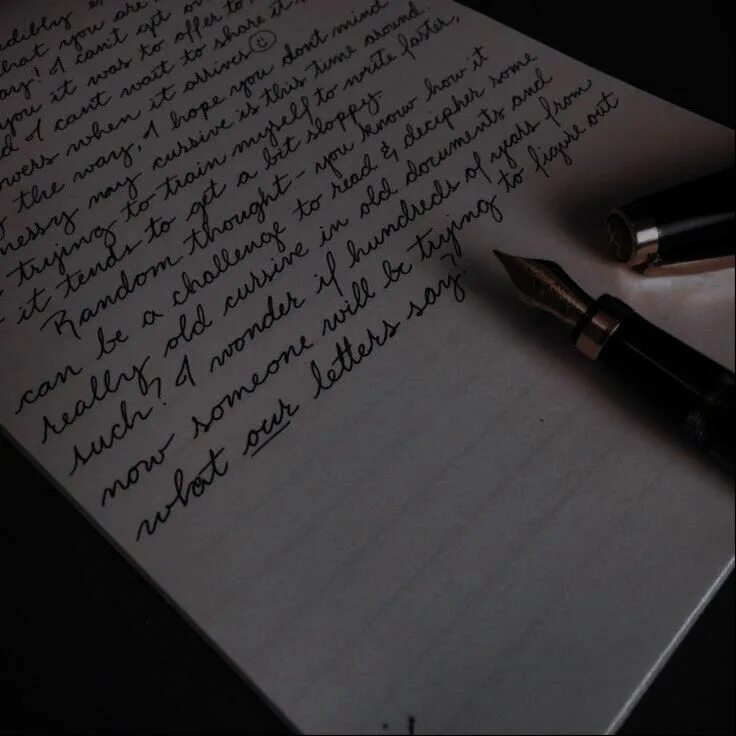 that you are
I can't
you it was to offer to
I can't wait to share it
when it arrives
the way, I hope you don't mind
messy my cursive is this time around.
trying to train myself to write faster,
it tends to get a bit sloppy.
Random thought - you know how it
can be a challenge to read & decipher some
really old cursive in old documents and
such? I wonder if hundreds of years from
now someone will be trying to figure out
what our letters say?